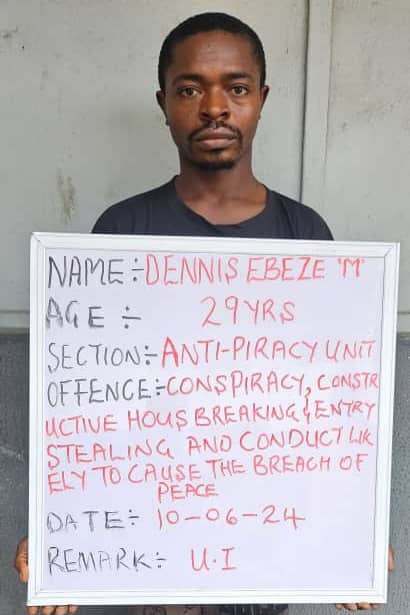 NAME:- DENNIS EBEZE 'M'
AGE :- 29YRS
SECTION:- ANTI-PIRACY UNIT
OFFENCE:- CONSPIRACY, CONSTR
UCTIVE HOUS BREAKING & ENTRY
STEALING AND CONDUCT LIK
ELY TO CAUSE THE BREACH OF
PEACE
DATE:- 10-06-24
REMARK:- U.I